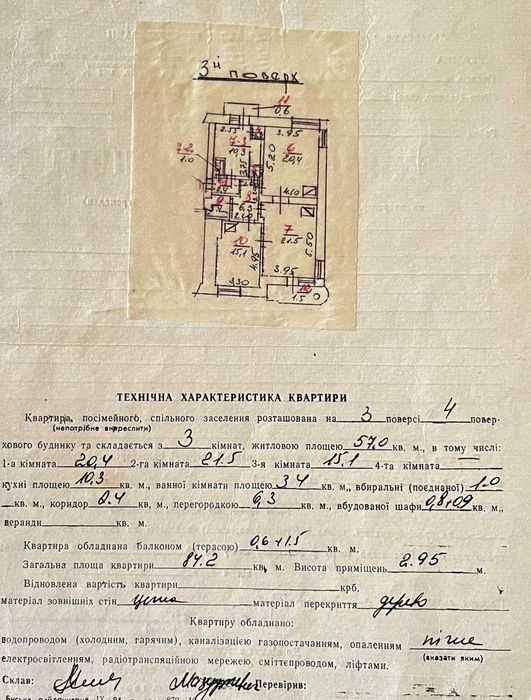 3й поверх
11
0,6
2.55
3.95
7-3
10,3
6
20,4
7-2
1.0
3.75
5,20
4.10
8
6,3
2.60
9
10
15,1
4.95
7
21.5
6.50
3.30
3.95
12
1.5
ТЕХНІЧНА ХАРАКТЕРИСТИКА КВАРТИРИ
Квартира, посімейного, спільного заселення розташована на 3 поверсі 4 повер-
(непотрібне викреслити)
хового будинку та складається з 3 кімнат, житловою площею 57,0 кв. м., в тому числі:
1-а кімната 20,4 2-га кімната 21.5 3-я кімната 15,1 4-та кімната
кухні площею 10,3 кв. м., ванної кімнати площею 3.4 кв. м., вбиральні (поєднаної) 1.0
кв. м., коридор 2.4 кв. м., перегородкою 6,3 кв. м., вбудованої шафи 0,8+0,9 кв. м.,
веранди кв. м.
Квартира обладнана балконом (терасою) 0,6+1.5 кв. м.
Загальна площа квартири 84.2 кв. м. Висота приміщень 2.95 м.
Відновлена вартість квартири крб.
матеріал зовнішніх стін цегла матеріал перекриття дерево
Квартиру обладнано:
водопроводом (холодним, гарячим), каналізацією газопостачанням, опаленням пічне
(вказати яким)
електросвітленням, радіотрансляційною мережею, сміттєпроводом, ліфтами.
Склав: Перевірив: